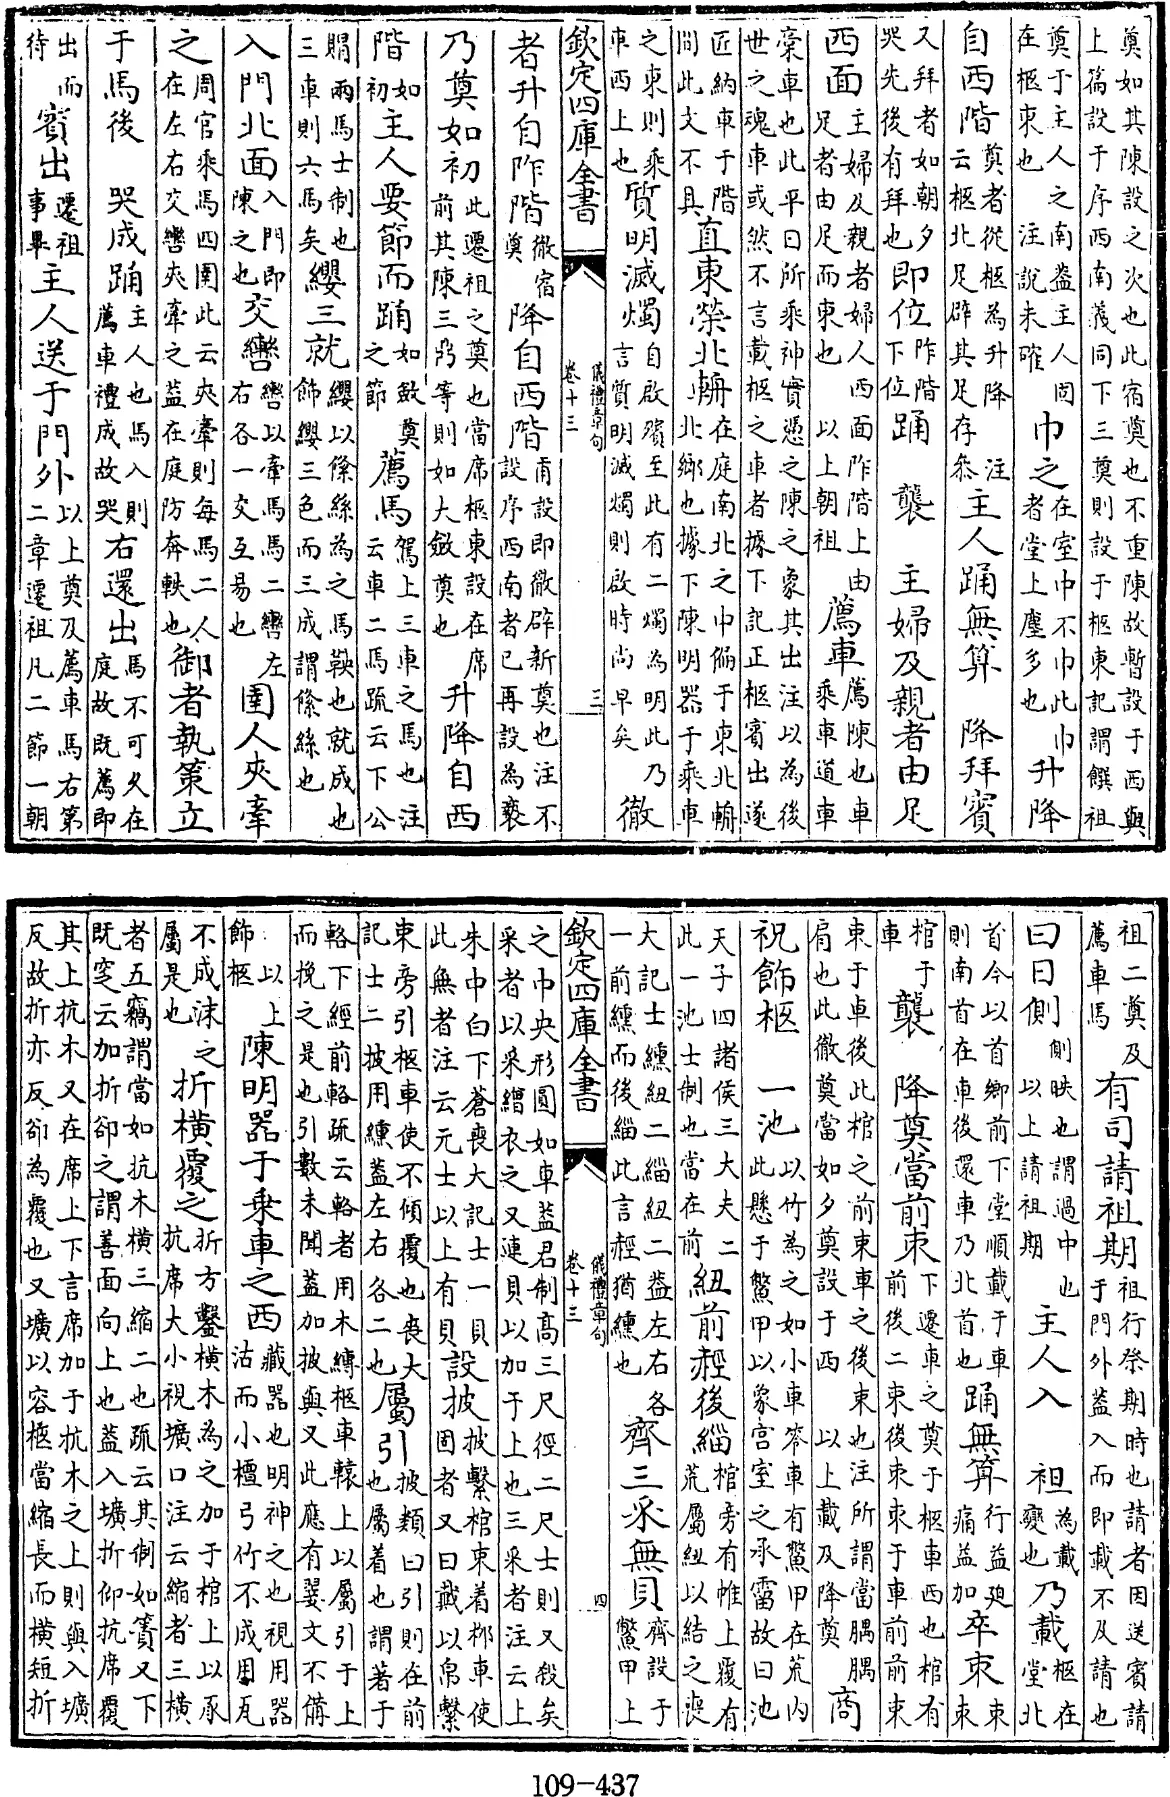 奠如其陳設之次也此宿奠也不重陳故暫設于西與
上篇設于序西南義同下三奠則設于柩東記謂饌祖
奠于主人之南盖主人固在柩東也注說未確巾之在室巾不巾此巾者堂上塵多也升降
自西階奠者從柩為升降注云柩北足辟其足存叅主人踊無算 降拜賓
又拜者如朝夕哭先後有拜也即位阼階下位踊 襲 主婦及親者由足
西面主婦及親者婦人西面阼階上由足者由足而東也 以上朝祖薦車薦陳也車乘車道車
槀車也此平日所乘神實憑之陳之象其出注以為後
世之魂車或然不言載柩之車者據下記正柩賓出遂
匠納車于階間此文不具直東榮北輈在庭南北之中偏于東北輈北鄉也據下陳明器于乘車
之東則乘車西上也質明滅燭自啟殯至此有二燭為明此乃言質明滅燭則啟時尚早矣徹
欽定四庫全書 儀禮章句 卷十三 三
者升自阼階徹宿奠降自西階甫設即徹辟新奠也注不設序西南者已再設為褻
乃奠如初此遷祖之奠也當席柩東設在席前其陳三鼎等則如大斂奠也升降自西
階如初主人要節而踊如斂奠之節薦馬駕上三車之馬也注云車二馬疏云下公
賵兩馬士制也三車則六馬矣纓三就纓以絛絲為之馬鞅也就成也飾纓三色而三成謂絛絲也
入門北面入門即陳之也交轡轡以牽馬馬二轡左右各一交互易也圉人夾牽
之周官乘馬四圉此云夾牽則每馬二人在左右交轡夾牽之盖在庭防奔軼也御者執策立
于馬後 哭成踊主人也馬入則薦車禮成故哭右還出馬不可久在庭故既薦即
出而待賓出遷祖事畢主人送于門外以上奠及薦車馬右第二章遷祖凡二節一朝
祖二奠及薦車馬有司請祖期祖行祭期時也請者因送賓請于門外盖入而即載不及請也
曰日側側昳也謂過中也 以上請祖期主人入 袒為載變也乃載柩在堂北
首今以首鄉前下堂順載于車則南首在車後還車乃北首也踊無算行益廹痛益加卒束束
棺于車襲 降奠當前束下遷車之奠于柩車西也棺有前後二束後束束于車前前束
束于車後此棺之前束車之後束也注所謂當腢腢肩也此徹奠當如夕奠設于西 以上載及降奠商
祝飾柩 一池以竹為之如小車笭車有鱉甲在荒內此懸于鱉甲以象宮室之承霤故曰池
天子四諸侯三大夫二此一池士制也當在前紐前䞓後緇棺旁有帷上覆有荒屬紐以結之喪
大記士纁紐二緇紐二盖左右各一前纁而後緇此言䞓猶纁也齊三采無貝齊設于鱉甲上
欽定四庫全書 儀禮章句 卷十三 四
之巾央形圓如車蓋君制高三尺徑二尺士則又殺矣
采者以采繒衣之又連貝以加于上也三采者注云上
朱中白下蒼喪大記士一貝此無者注云元士以上有貝設披披繫棺束着桞車使固者又曰戴以帛繫
束旁引柩車使不傾覆也喪大記士二披用纁盖左右各二也屬引披類曰引則在前也屬着也謂著于
輅下經前輅疏云輅者用木縛柩車轅上以屬引于上
而挽之是也引數未聞盖加披與又此應有翣文不備
以上飾柩陳明器于乗車之西藏器也明神之也視用器沽而小檀弓竹不成用瓦
不成沬之屬是也折橫覆之折方鑿橫木為之加于棺上以承抗席大小視壙口注云縮者三橫
者五竊謂當如抗木橫三縮二也疏云其側如簀又下
既窆云加折卻之謂善面向上也盖入壙折仰抗席覆
其上抗木又在席上下言席加于抗木之上則與入壙
反故折亦反卻為覆也又壙以容柩當縮長而橫短折
109-437